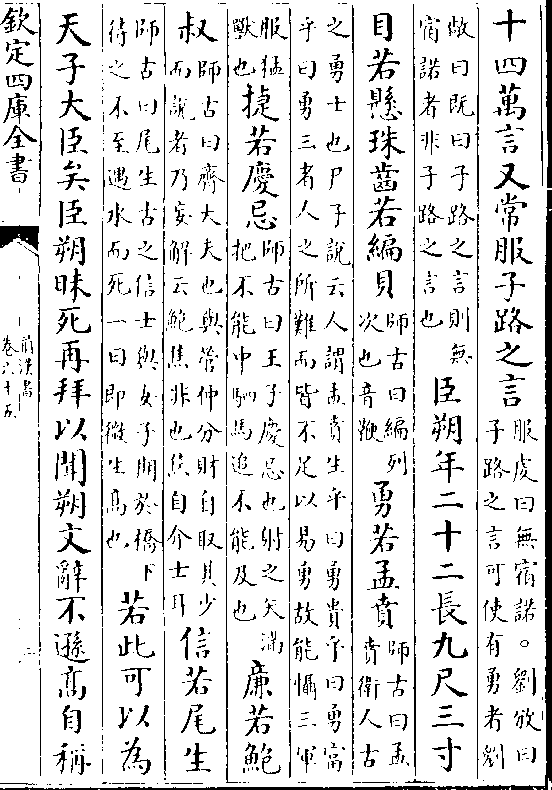 十四萬言又常服子路之言服虔曰無宿諾。劉攽曰子路之言可使有勇者劉
敞曰既曰子路之言則無宿諾者非子路之言也臣朔年二十二長九尺三寸
目若懸珠齒若編貝師古曰編列次也音鞭勇若孟賁師古曰孟賁衛人古
之勇士也尸子說云人謂孟賁生乎曰勇貴乎曰勇富乎曰勇三者人之所難而皆不足以易勇故能懾三軍
服猛獸也捷若慶忌師古曰王子慶忌也射之矢滿把不能中駟馬追不能及也廉若鮑
叔師古曰齊大夫也與管仲分財自取其少而說者乃妄解云鮑焦非也焦自介士耳信若尾生
師古曰尾生古之信士與女子期於橋下待之不至遇水而死一曰即微生高也若此可以為
天子大臣矣臣朔昧死再拜以聞朔文辭不遜高自稱
欽定四庫全書
前漢書
卷六十五